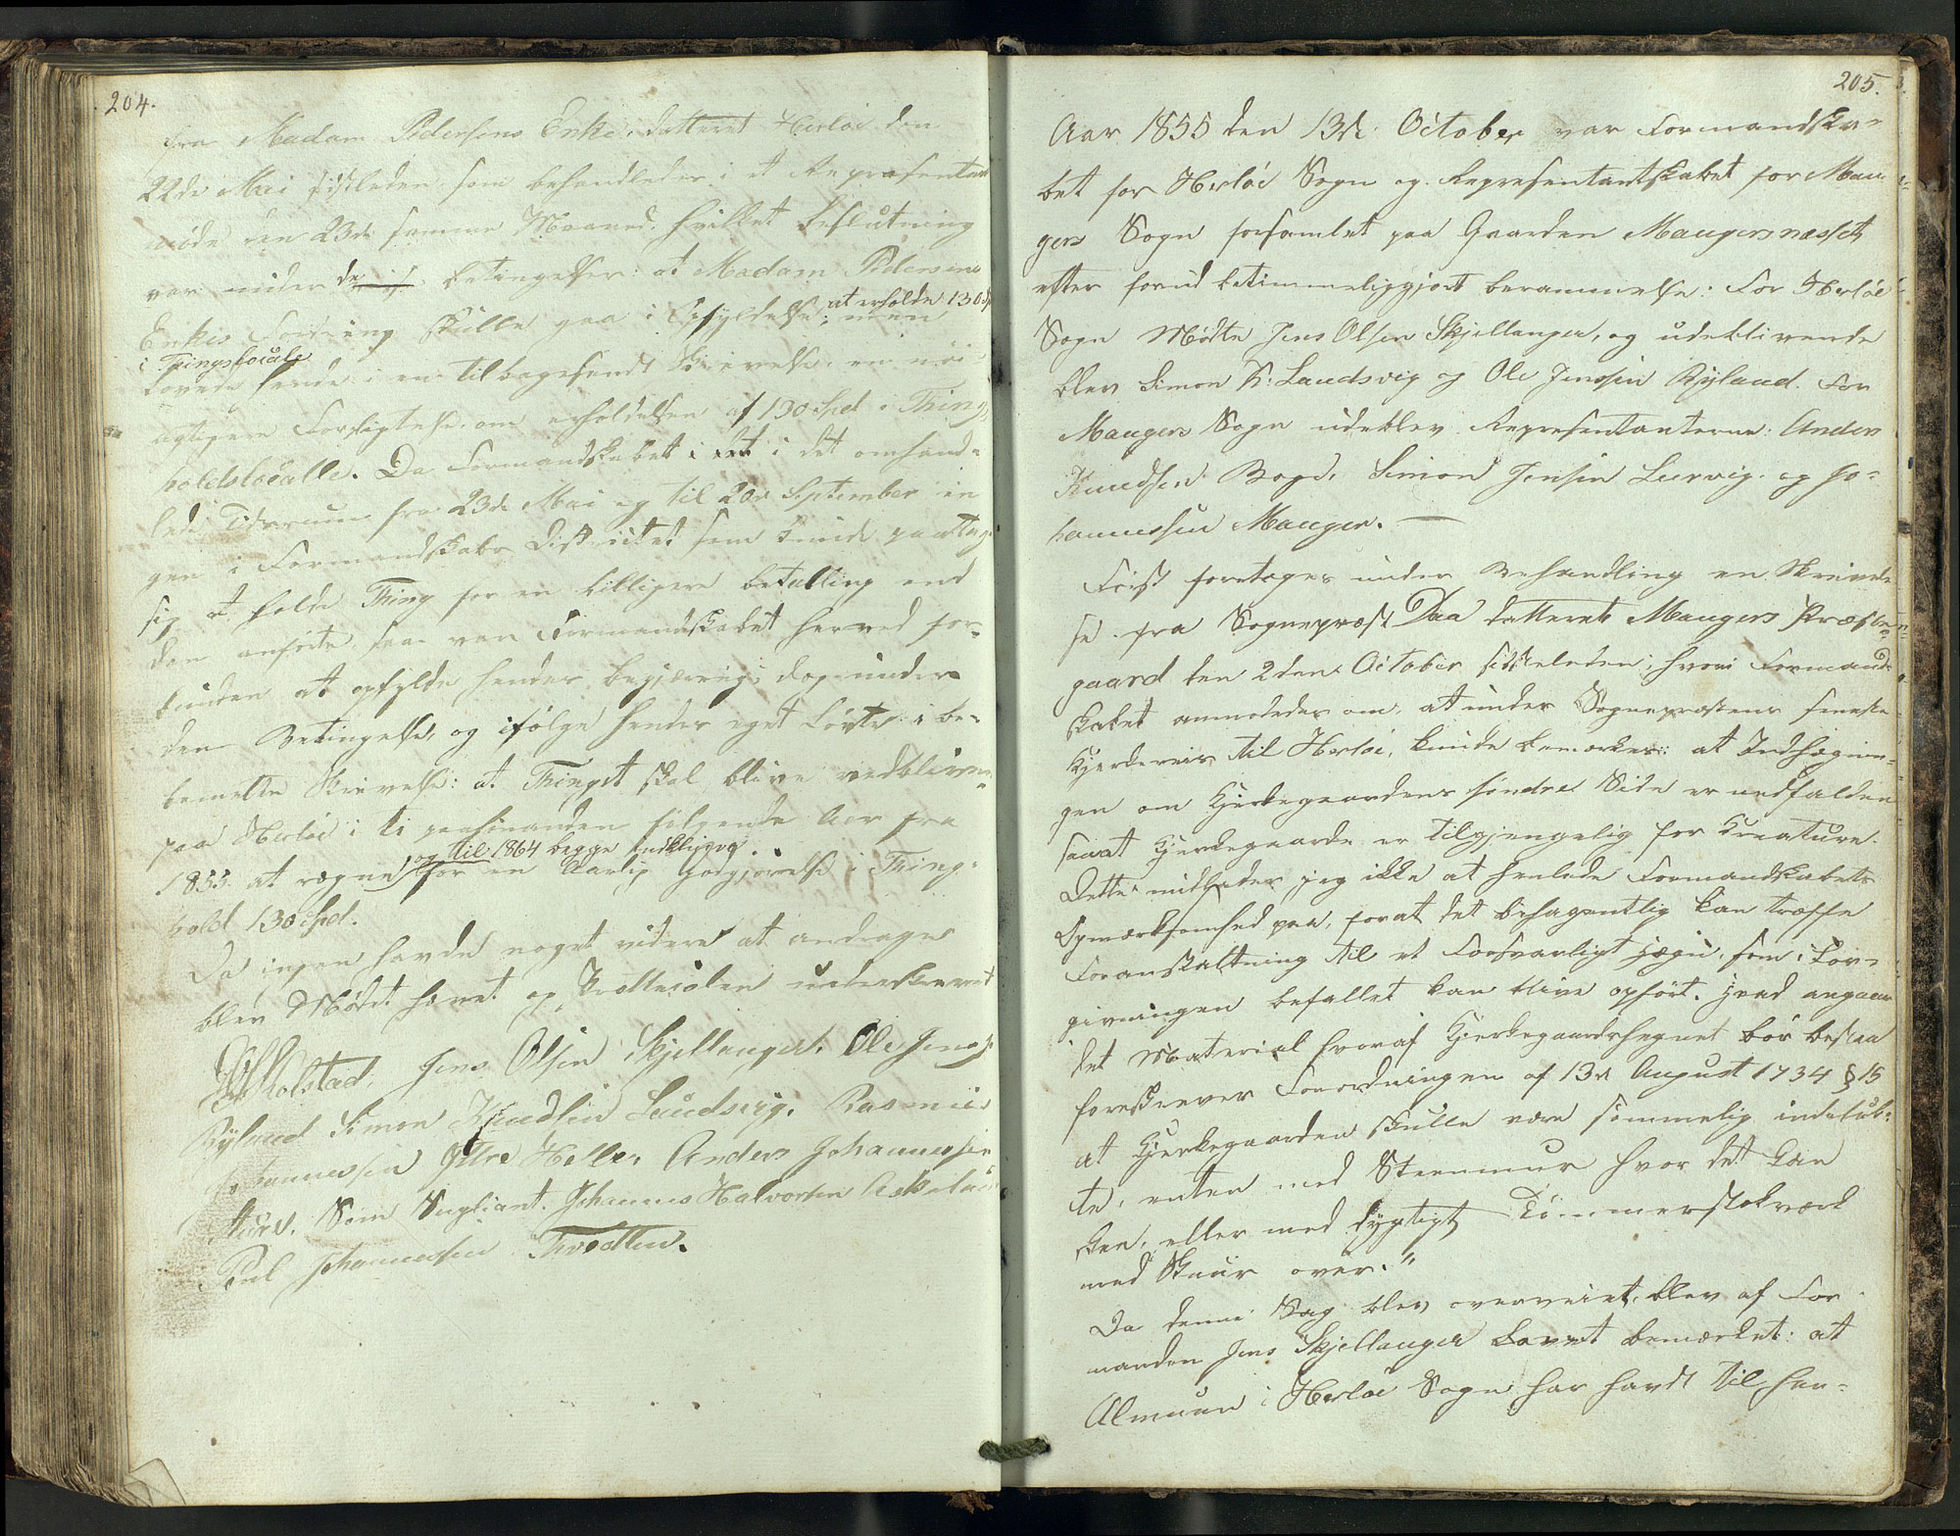 204.
fra Madam Pedersens Enke, datteret Herløe den
22de Mai sidstleden, som behandledes i et Repræsentant
møde den 23de samme Maaned, hvilket beslutning
var under de betingelser: at Madam Pedersens
Enkes Fordring skulle gaa i Opfyldelse; men at erholde 130 Spd
i Tingslocale
lovede hende i en tilbagesendt Skrivelse, en nöi-
agtigere Forsigtelse om erholdelsen af 130 Spd i Thing-
holdslocalle. Da Formandskabet i det omhand-
lede Tidsrum fra 23de Mai og til 20de September in
gen i Formandskabs Districtet som kunde paatag-
sig at holde Thing for en billigere betalling end
den anførte, saa var Formandskabet herved for-
bunden at opfylde hendes begjæring; dog under
den Betingelse, og ifölge hendes eget Løvte i be-
bemelte Skrivelse: at Thinget skal blive vedbliven-
paa Herløe i ti paahinanden fölgende Aar fra
og til 1864 begge indklusive
1855 at regne, for en Aarlig Godtgjörelse i Thing-
hold 130 Spd.
Da ingen havde noget videre at andrage
blev Mödet hævet og Prottocolen underskrevet
Molstad, Jens Olsen Skjellanger. Ole Jenss:
Ryland Simon Knudsen Landsvig. Rasmus
Johannessen Ytre Helle. Anders Johannessen
Som Supliant. Johannes Halvorsen Askeland
Poul Johannessen Tvedten.
205.
Aar 1855 den 13de October var Formandska-
bet for Herløe Sogn og Repræsentantskabet for Man-
gers Sogn forsamlet paa Gaarden Mangersnæsset
efter forud betimmeliggjort berammelse: For Herløe
Sogn Mödte Jens Olsen Skjellanger, og udeblivende
blev Simon K: Landsvig og Ole Jenssen Ryland. For
Mangers Sogn udeblev Repræsentanterne: Anders
Knudsen Bogn, Simon Jensen Lurvig og Jo-
hannessen Manger. —
Først foretoges under Behandling en Skrivel-
se fra Sognepræst Daa datteret Mangers Præste-
gaard den 2den October sidstleden; hvori Formand-
skabet anmodedes om, at under Sognepræstens seneste
Kjerkereis til Herløe, kunde bemærkes: at Indhegnin-
gen om Kjerkegaardens söndre Side er nedfalden
saaat Kjerkegaarde er tilgjengelig for Kreature.
Dette undlader jeg ikke at henlede Formandskabets
Opmærksomhed paa, forat det behagentlig kan træffe
Foranstaltning til et Forsvarligt Hægn, som i Lov-
givningen befallet kan blive opført. Hvad angaar
det Material hvoraf Kjerkegaardshegnet bör bestaa
foreskrever Forordningen af 13de August 1734 § 15
at Kjerkegaarden skulle være sömmelig indeluk-
te, enten med Steenmur hvor det kan
skee, eller med dygtigt Tömmerstokværk
med Skuur over."
Da denne Sag blev overveiet, blev af For-
manden Jens Skjellanger Lovet bemærket: at
Almuen i Herløe Sogn har havdt til hen-